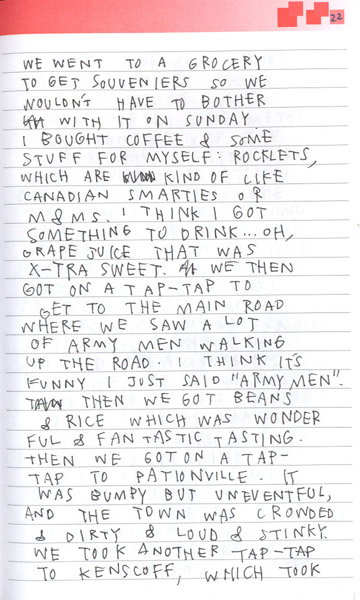 22
WE WENT TO A GROCERY
TO GET SOUVENIERS SO WE
WOULDN'T HAVE TO BOTHER
WITH IT ON SUNDAY
I BOUGHT COFFEE & SOME
STUFF FOR MYSELF: ROCKLETS,
WHICH ARE KIND OF LIKE
CANADIAN SMARTIES OR
M&MS. I THINK I GOT
SOMETHING TO DRINK... OH,
GRAPE JUICE THAT WAS
X-TRA SWEET. WE THEN
GOT ON A TAP-TAP TO
GET TO THE MAIN ROAD
WHERE WE SAW A LOT
OF ARMY MEN WALKING
UP THE ROAD. I THINK IT'S
FUNNY I JUST SAID "ARMY MEN".
THEN WE GOT BEANS
& RICE WHICH WAS WONDER
FUL & FANTASTIC TASTING.
THEN WE GOT ON A TAP-
TAP TO PATIONVILLE. IT
WAS BUMPY BUT UNEVENTFUL,
AND THE TOWN WAS CROWDED
& DIRTY & LOUD & STINKY.
WE TOOK ANOTHER TAP-TAP
TO KENSCOFF, WHICH TOOK